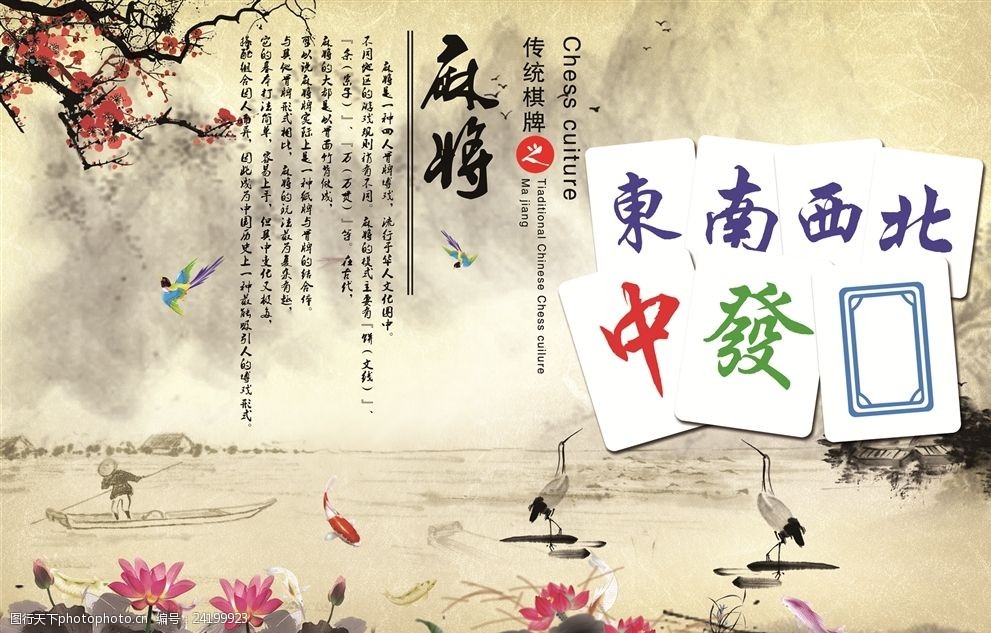 Chess cuiture
传统棋牌之
Tiaditional Chinese Chess cuilure
Ma jiang
麻将
麻将是一种四人骨牌博戏，流行于华人文化圈中。
不同地区的游戏规则稍有不同。麻将的牌式主要有『饼（文线）』、
『条（索子）』、『万（万贯）』等。在古代，
麻将的大都是以骨面竹背做成，
可以说麻将牌实际上是一种纸牌与骨牌的结合体。
与其他骨牌形式相比，麻将的玩法最为复杂有趣，
它的基本打法简单，容易上手，但其中变化又极多，
搭配组合因人而异，因此成为中国历史上一种最能吸引人的博戏形式。
東 南 西 北
中 發
图行天下photophoto.cn 编号：24199923